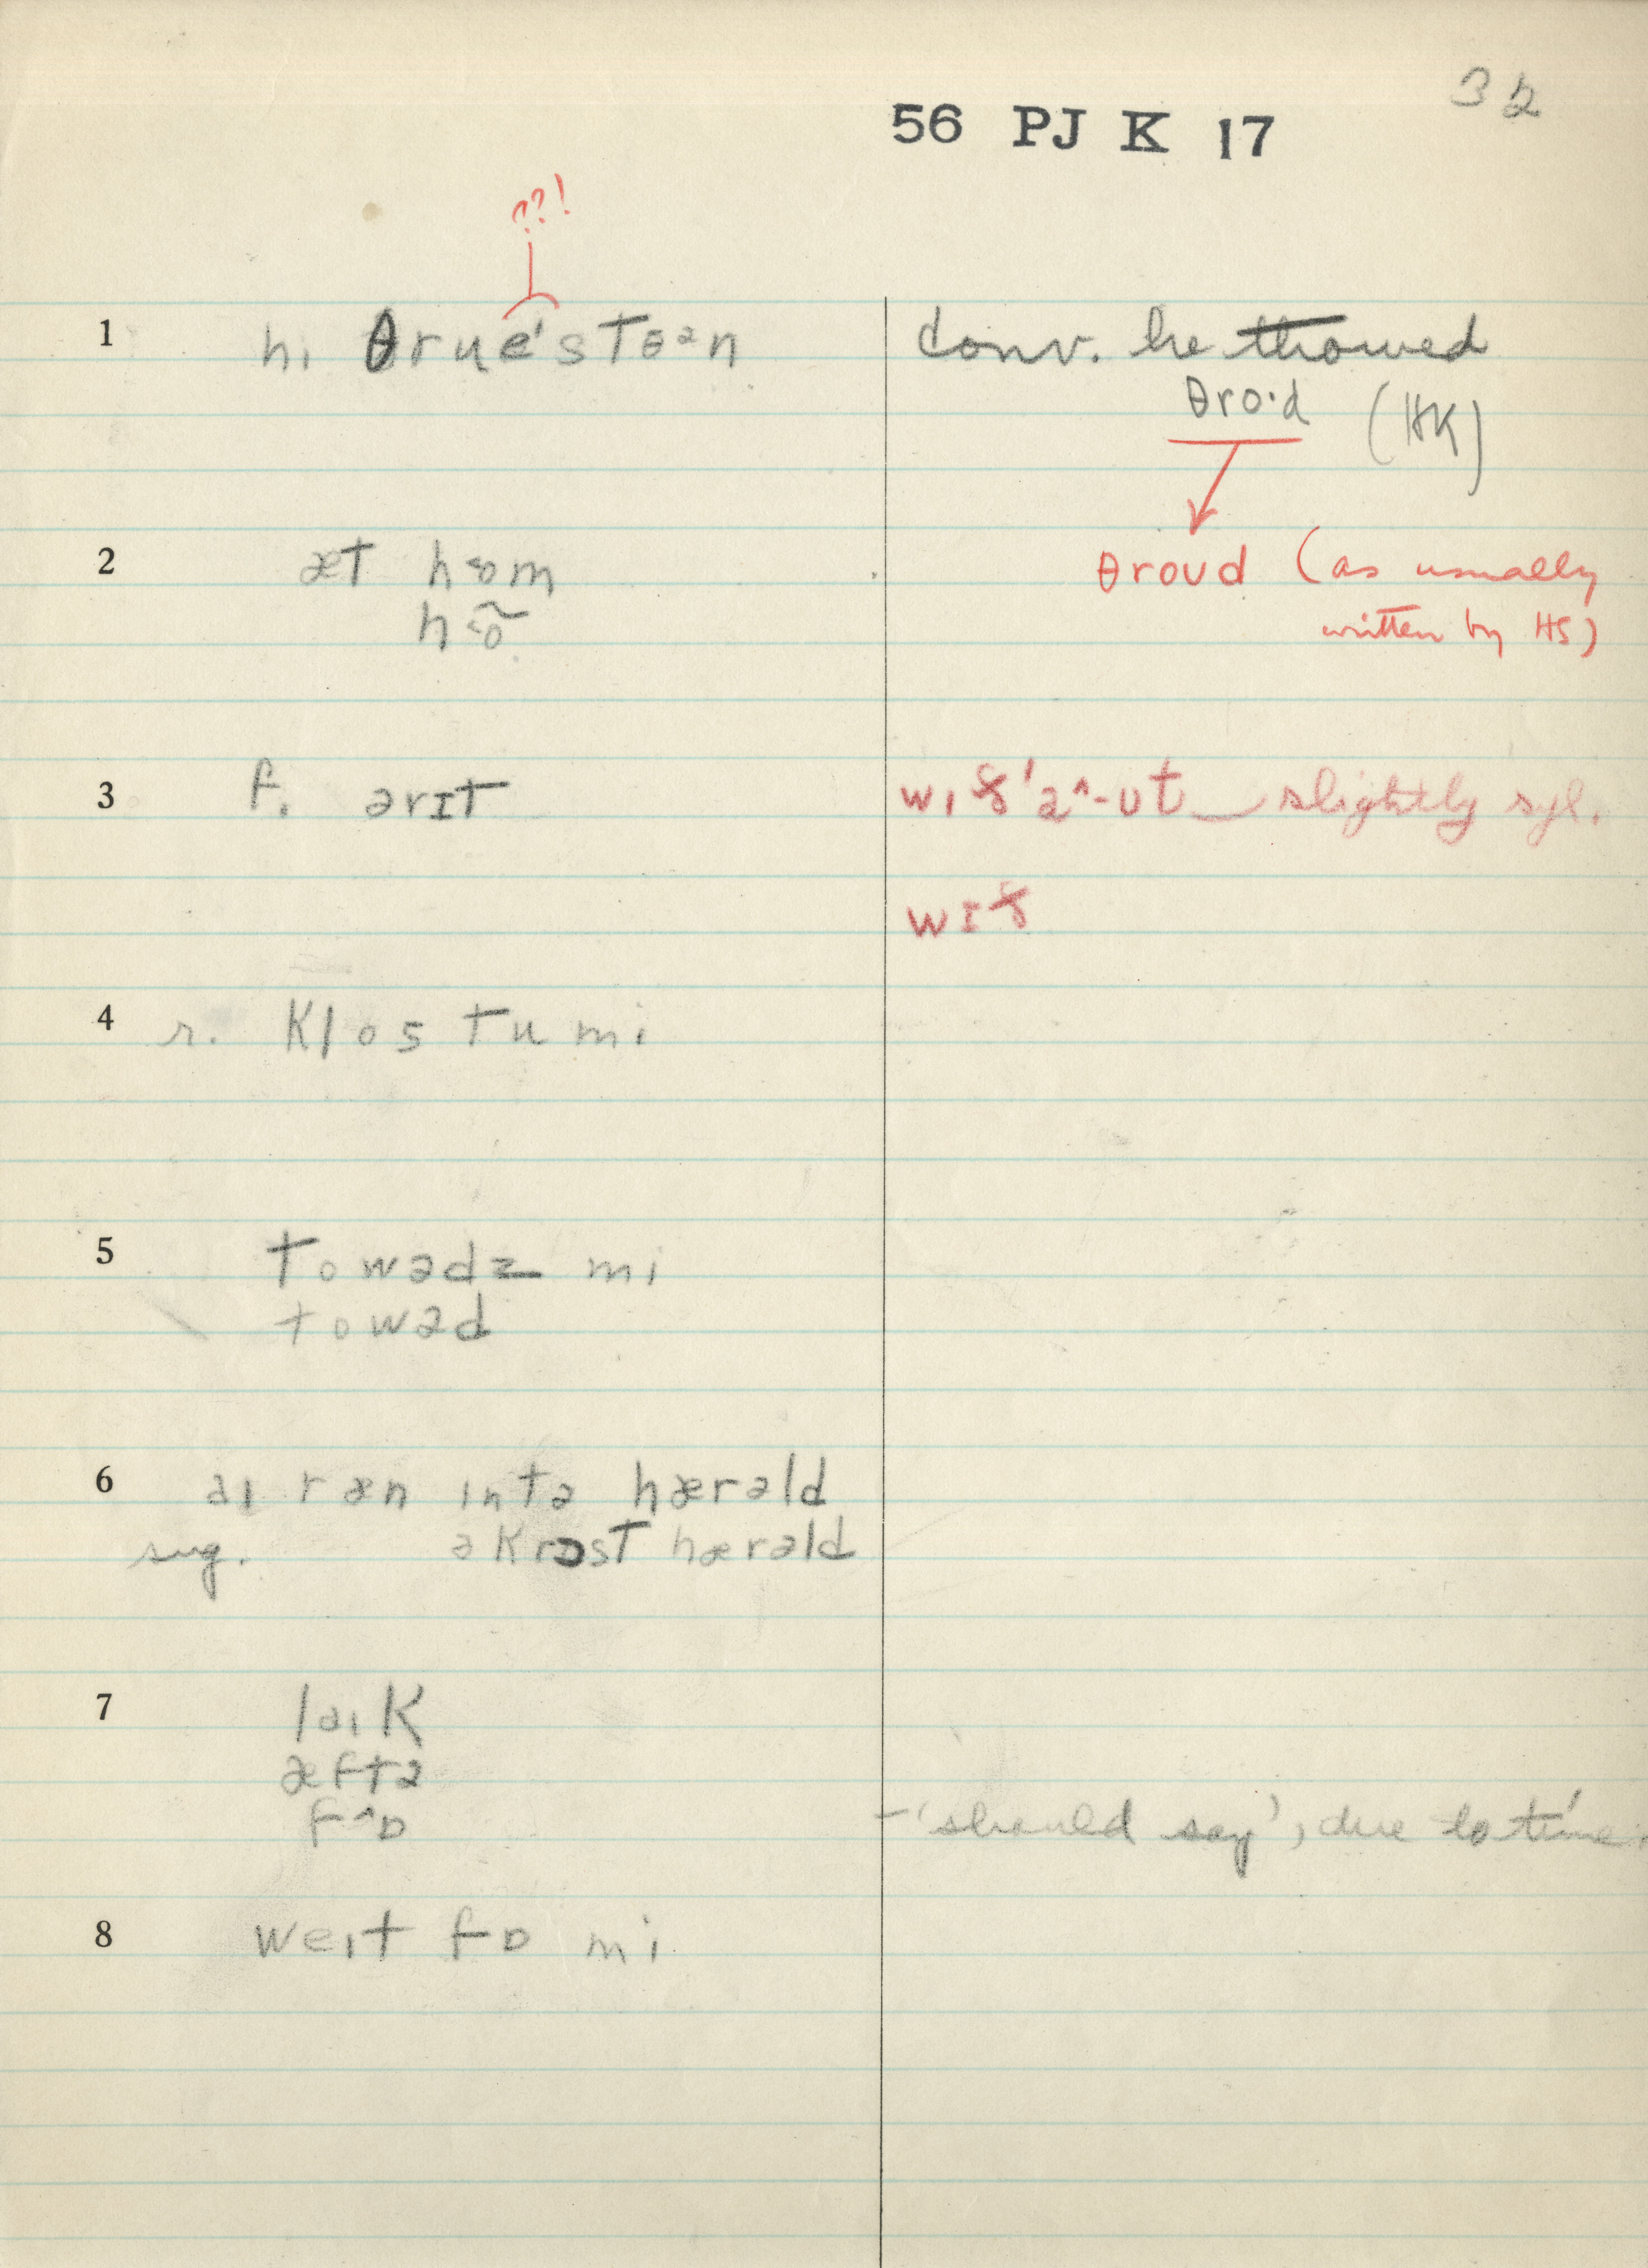 32
56 PJ K 17
??!
1 hi θrue'stɵən conv. he throwed
θro·d (HK)
2 æt hɵm θroud (as usually
written by HS)
3 f. ərɪt wɪð'ə^-ʊt slightly syl.
wɪð
4 r. klos tu mi
5 towədz mi
towəd
6 aɪ ræn ɪntə hærəld
sug. əkrɔst hærəld
7 laɪk
æftə
f^ɒ – 'should say', due to time.
8 weɪt fɒ mi